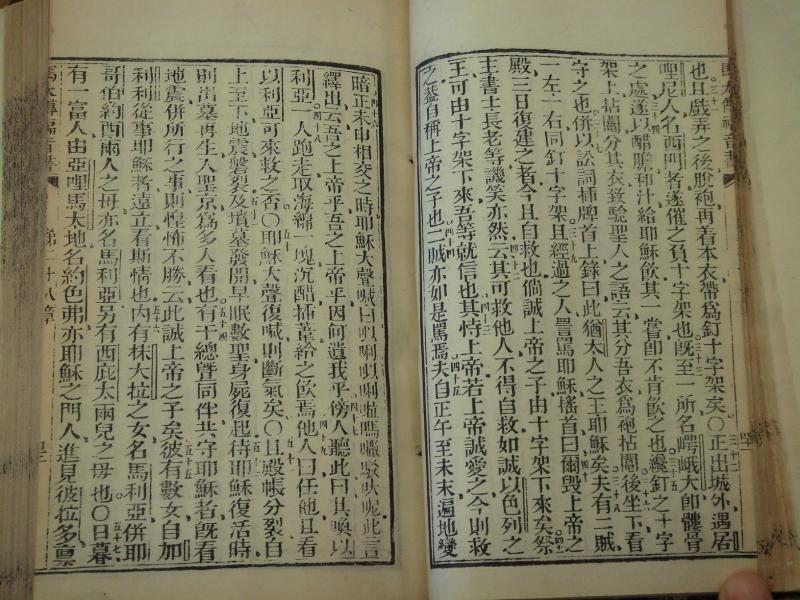 馬太傳福音書
也且戲弄之後脫袍再着本衣帶爲釘十字架矣○正出城外遇居
哩尼人名西門者遂催之負十字架也旣至一所名嶀峨大卽髏骨
之處遂以醋膽和汁給耶穌飲其一嘗卽不肯飲之也纔釘之十字
架上拈鬮分其衣致驗聖人之語云其分吾衣爲袍拈鬮後坐下看
守之也併以訟詞插牌首上錄曰此猶太人之王耶穌矣夫有二賊
一左一右同釘十字架且經過之人詈罵耶穌搖首曰爾毀上帝之
殿三日復建之者今且自救也倘誠上帝之子由十字架下來矣祭
主書士長老等譏笑亦然云其可救他人不得自救如誠以色列之
王可由十字架下來吾等就信也其恃上帝若上帝誠愛之今則救
之蓋自稱上帝之子也二賊亦如是罵焉夫自正午至未末遍地變
暗正未申相交之時耶穌大聲喊曰以唎以唎
繹出云吾之上帝乎吾之上帝乎因何遺我乎傍人聽此曰其喚以
利亞一人跑走取海綿一塊沉醋插葦給之飲焉他人曰任他且看
以利亞可來救之否○耶穌大聲復喊則斷氣矣○且殿帳分裂自
上至下地震磐裂及墳墓發開早眠數聖身屍復起待耶穌復活時
則出墓再生入聖京爲多人看也有千總暨同伴共守耶穌者旣看
地震併所行之事則惶怖不勝云此誠上帝之子矣彼有數女自加
利利從事耶穌者遠立看斯情也內有抹大拉之女名馬利亞併耶
哥伯約西兩人之母亦名馬利亞另有西庇太兩兒之母也○日暮
有一富人由亞哩馬太地名約色弗亦耶穌之門人進見彼拉多稟
馬太傳福音書 第二十八章